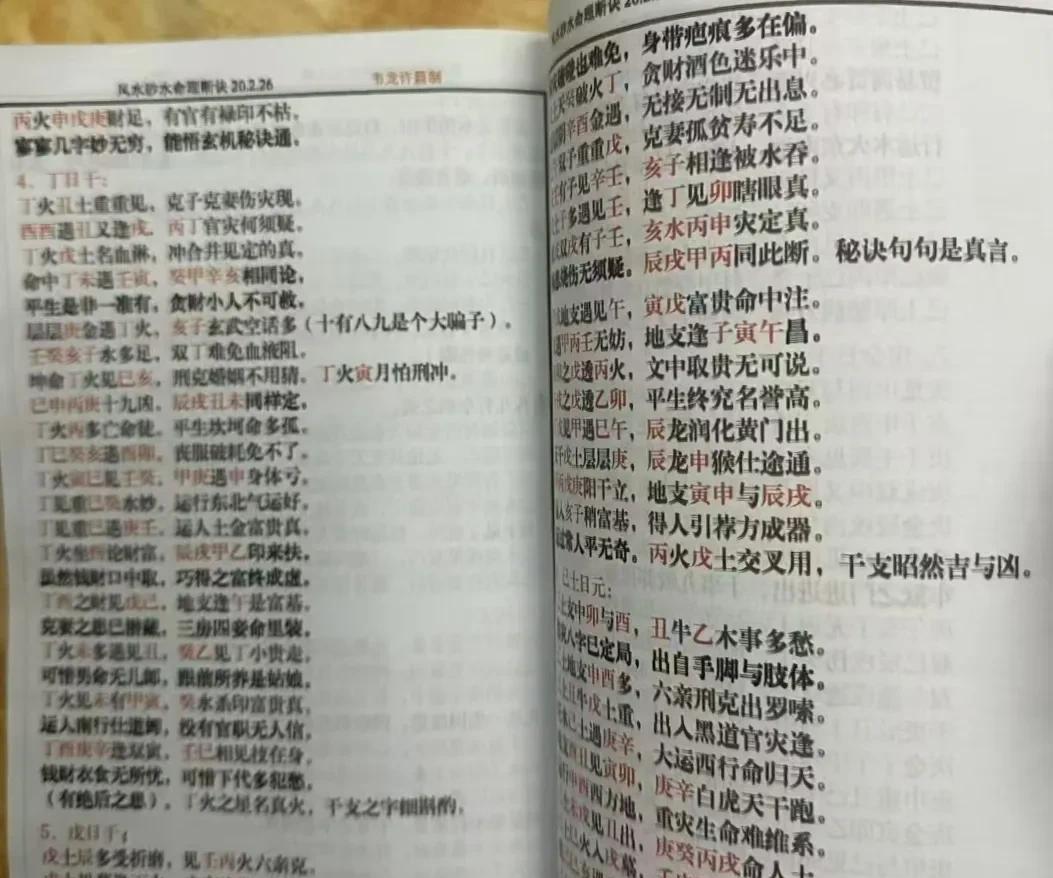 风水砂水命理断诀 20.2.26
韦龙许篇制
丙火申戌庚财足，有官有禄印不枯。
寥寥几字妙无穷，能悟玄机秘诀通。
4、丁日干：
丁火丑土重重见，克子克妻伤灾现。
酉酉遇丑又逢戌，丙丁官灾何须疑。
丁火戌土名血淋，冲合并见定的真。
命中丁未遇壬寅，癸甲辛亥相同论，
平生是非一准有，贪财小人不可救。
层层庚金遇丁火，亥子玄武空话多（十有八九是个大骗子）。
壬癸亥子水多足，双丁难免血液阻。
坤命丁火见巳亥，刑克婚姻不用猜。丁火寅月怕刑冲。
巳申丙庚十九凶，辰戌丑未同样定。
丁火丙多亡命徒，平生坎坷命多孤。
丁巳癸亥遇酉卯，丧服破耗免不了。
丁火寅巳见壬癸，甲庚遇申身体亏。
丁见重巳癸水妙，运行东北气运好。
丁见重巳遇庚壬，运人土金富贵真。
丁火坐酉论财富，辰戌甲乙印来扶。
虽然钱财口中取，巧得之富终成虚。
丁酉之财见戊己，地支逢午是富基。
克妻之患已潜藏，三房四妾命里装。
丁火未多遇见丑，癸乙见丁小贵走。
可惜男命无儿郎，跟前所养是姑娘。
丁火见未有甲寅，癸水杀印富贵真。
运人南行仕道卿，没有官职无人信。
丁酉庚辛逢双寅，壬巳相见技在身。
钱财衣食无所忧，可惜下代多犯愁。
（有绝后之患），丁火之星名真火，干支之字细斟酌，
5、戊日干：
戊土辰多受折磨，见壬丙火六亲克。
风水砂水命理断诀 20.2.
也难免，身带疤痕多在偏。
癸破火丁，贪财酒色迷乐中。
辛酉金遇，无接无制无出息。
双子重重戊，克妻孤贫寿不足。
有子见辛壬，亥子相逢被水吞。
干多遇见壬，逢丁见卯瞎眼真。
双戌有子壬，亥水丙申灾定真。
烧伤无须疑。辰戌甲丙同此断。秘诀句句是真言。
地支遇见午，寅戌富贵命中注。
遇甲丙壬无妨，地支逢子寅午昌。
之戊透丙火，文中取贵无可说。
之戊透乙卯，平生终究名誉高。
见甲遇巳午，辰龙润化黄门出。
干戊土层层庚，辰龙申猴仕途通。
丙戊庚阳干立，地支寅申与辰戌。
人亥子稍富基，得人引荐方成器。
常人平无奇。丙火戊土交叉用，干支昭然吉与凶。
己土日元：
女中卯与酉，丑牛乙木事多愁。
八字已定局，出自手脚与肢体。
地支申酉多，六亲刑克出罗嗦。
丑牛戊土重，出入黑道官灾逢。
己土遇庚辛，大运西行命归天。
酉丑见寅卯，庚辛白虎天干跑。
申酉西方地，重灾生命难维系。
未戌见丑出，庚癸丙戌命人土
火人戌墓，